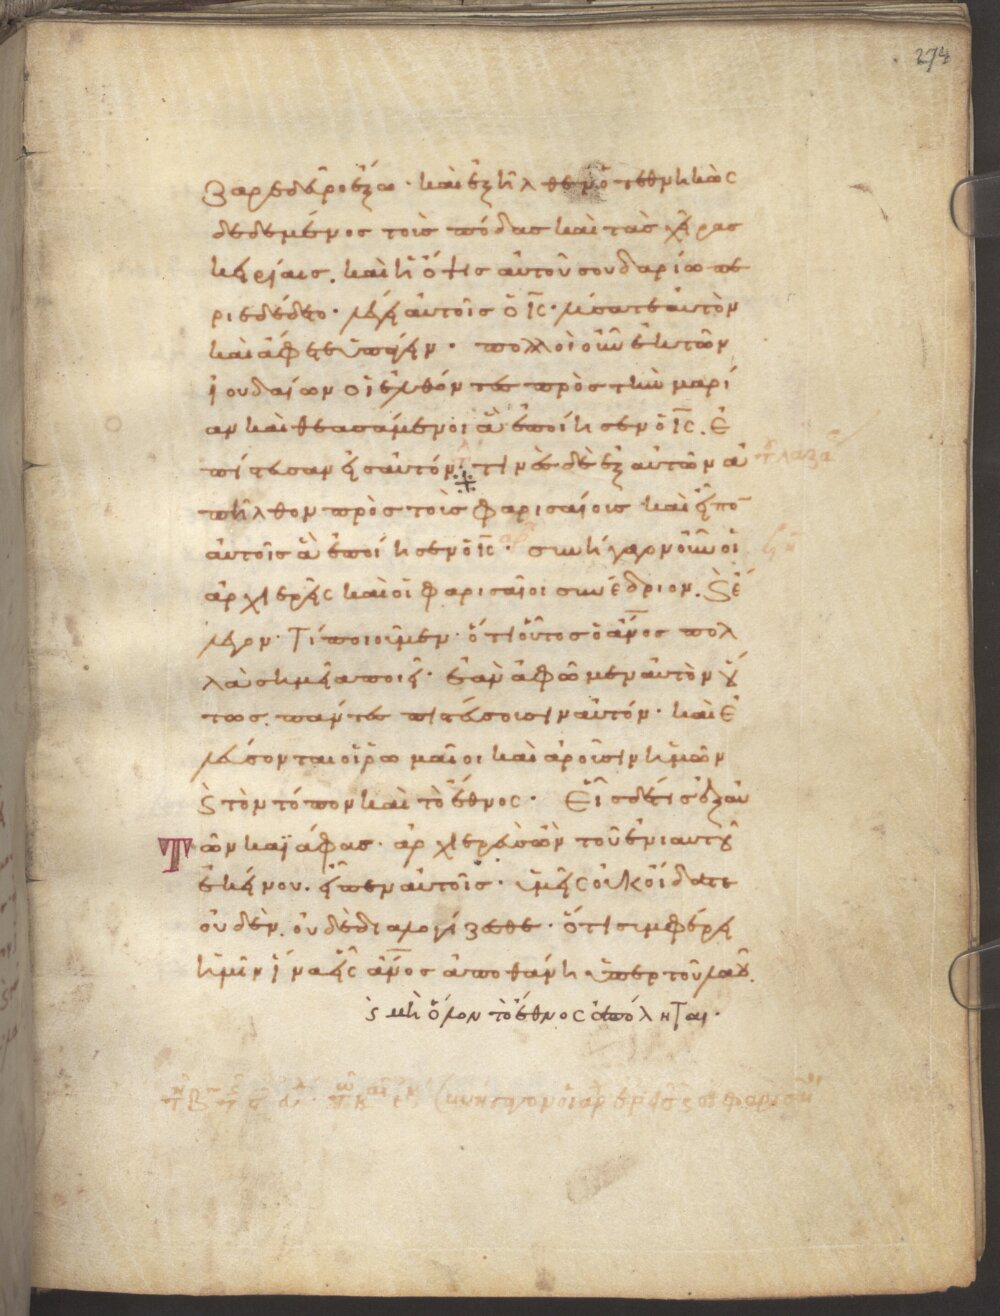 274
ζαρε δεῦρο ἔξω· καὶ ἐξῆλθεν ὁ τεθνηκὼς
δεδεμένος τοὺς πόδας καὶ τὰς χεῖρας
κειρίαις. καὶ ἡ ὄψις αὐτοῦ σουδαρίω πε
ριεδέδετο· λέγει αὐτοῖς ὁ ις· λύσατε αὐτὸν
καὶ ἄφετε ὑπάγειν· πολλοὶ οὖν ἐκ τῶν
ἰουδαίων οἱ ἐλθόντες πρὸς τὴν μαρί
αν καὶ θεασάμενοι ἃ ἐποίησεν ὁ ις. ἐ
πίστευσαν εἰς αὐτόν· τινὲς δὲ ἐξ αὐτῶν ἀ
πῆλθον πρὸς τοὺς φαρισαίους καὶ εἶπο
αὐτοῖς ἃ ἐποίησεν ὁ ις· συνήγαγον οὖν οἱ
ἀρχιερεῖς καὶ οἱ φαρισαῖοι συνέδριον. ϗ ἔ
λεγον· τί ποιοῦμεν· ὅτι οὗτος ὁ ανος πολ
λὰ σημεῖα ποιεῖ· ἐὰν ἀφῶμεν αὐτὸν οὕ
τως. πάντες πιστεύσουσιν αὐτόν· καὶ ἐ
λεύσονται οἱ ῥωμαῖοι καὶ ἀροῦσιν ἡμῶν
ϗ τὸν τόπον καὶ τὸ ἔθνος· εἷς δέ τις ἐξ αυ
τῶν καϊάφας· ἀρχιερεὺς ὢν τοῦ ἐνιαυτοῦ
ἐκείνου. εἶπεν αὐτοῖς· ὑμεῖς οὐκ οἴδατε
οὐδὲν. οὐδὲ διαλογίζεσθε· ὅτι συμφέρει
ἡμῖν ἵνα εἷς ανος ἀποθάνη ὑπὲρ τοῦ λαοῦ.
ϗ μὴ ὅλον τὸ ἔθνος ἀπόληται·